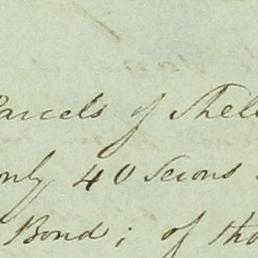 Parcels of Shell
only 40 Serons
Bond; of tho